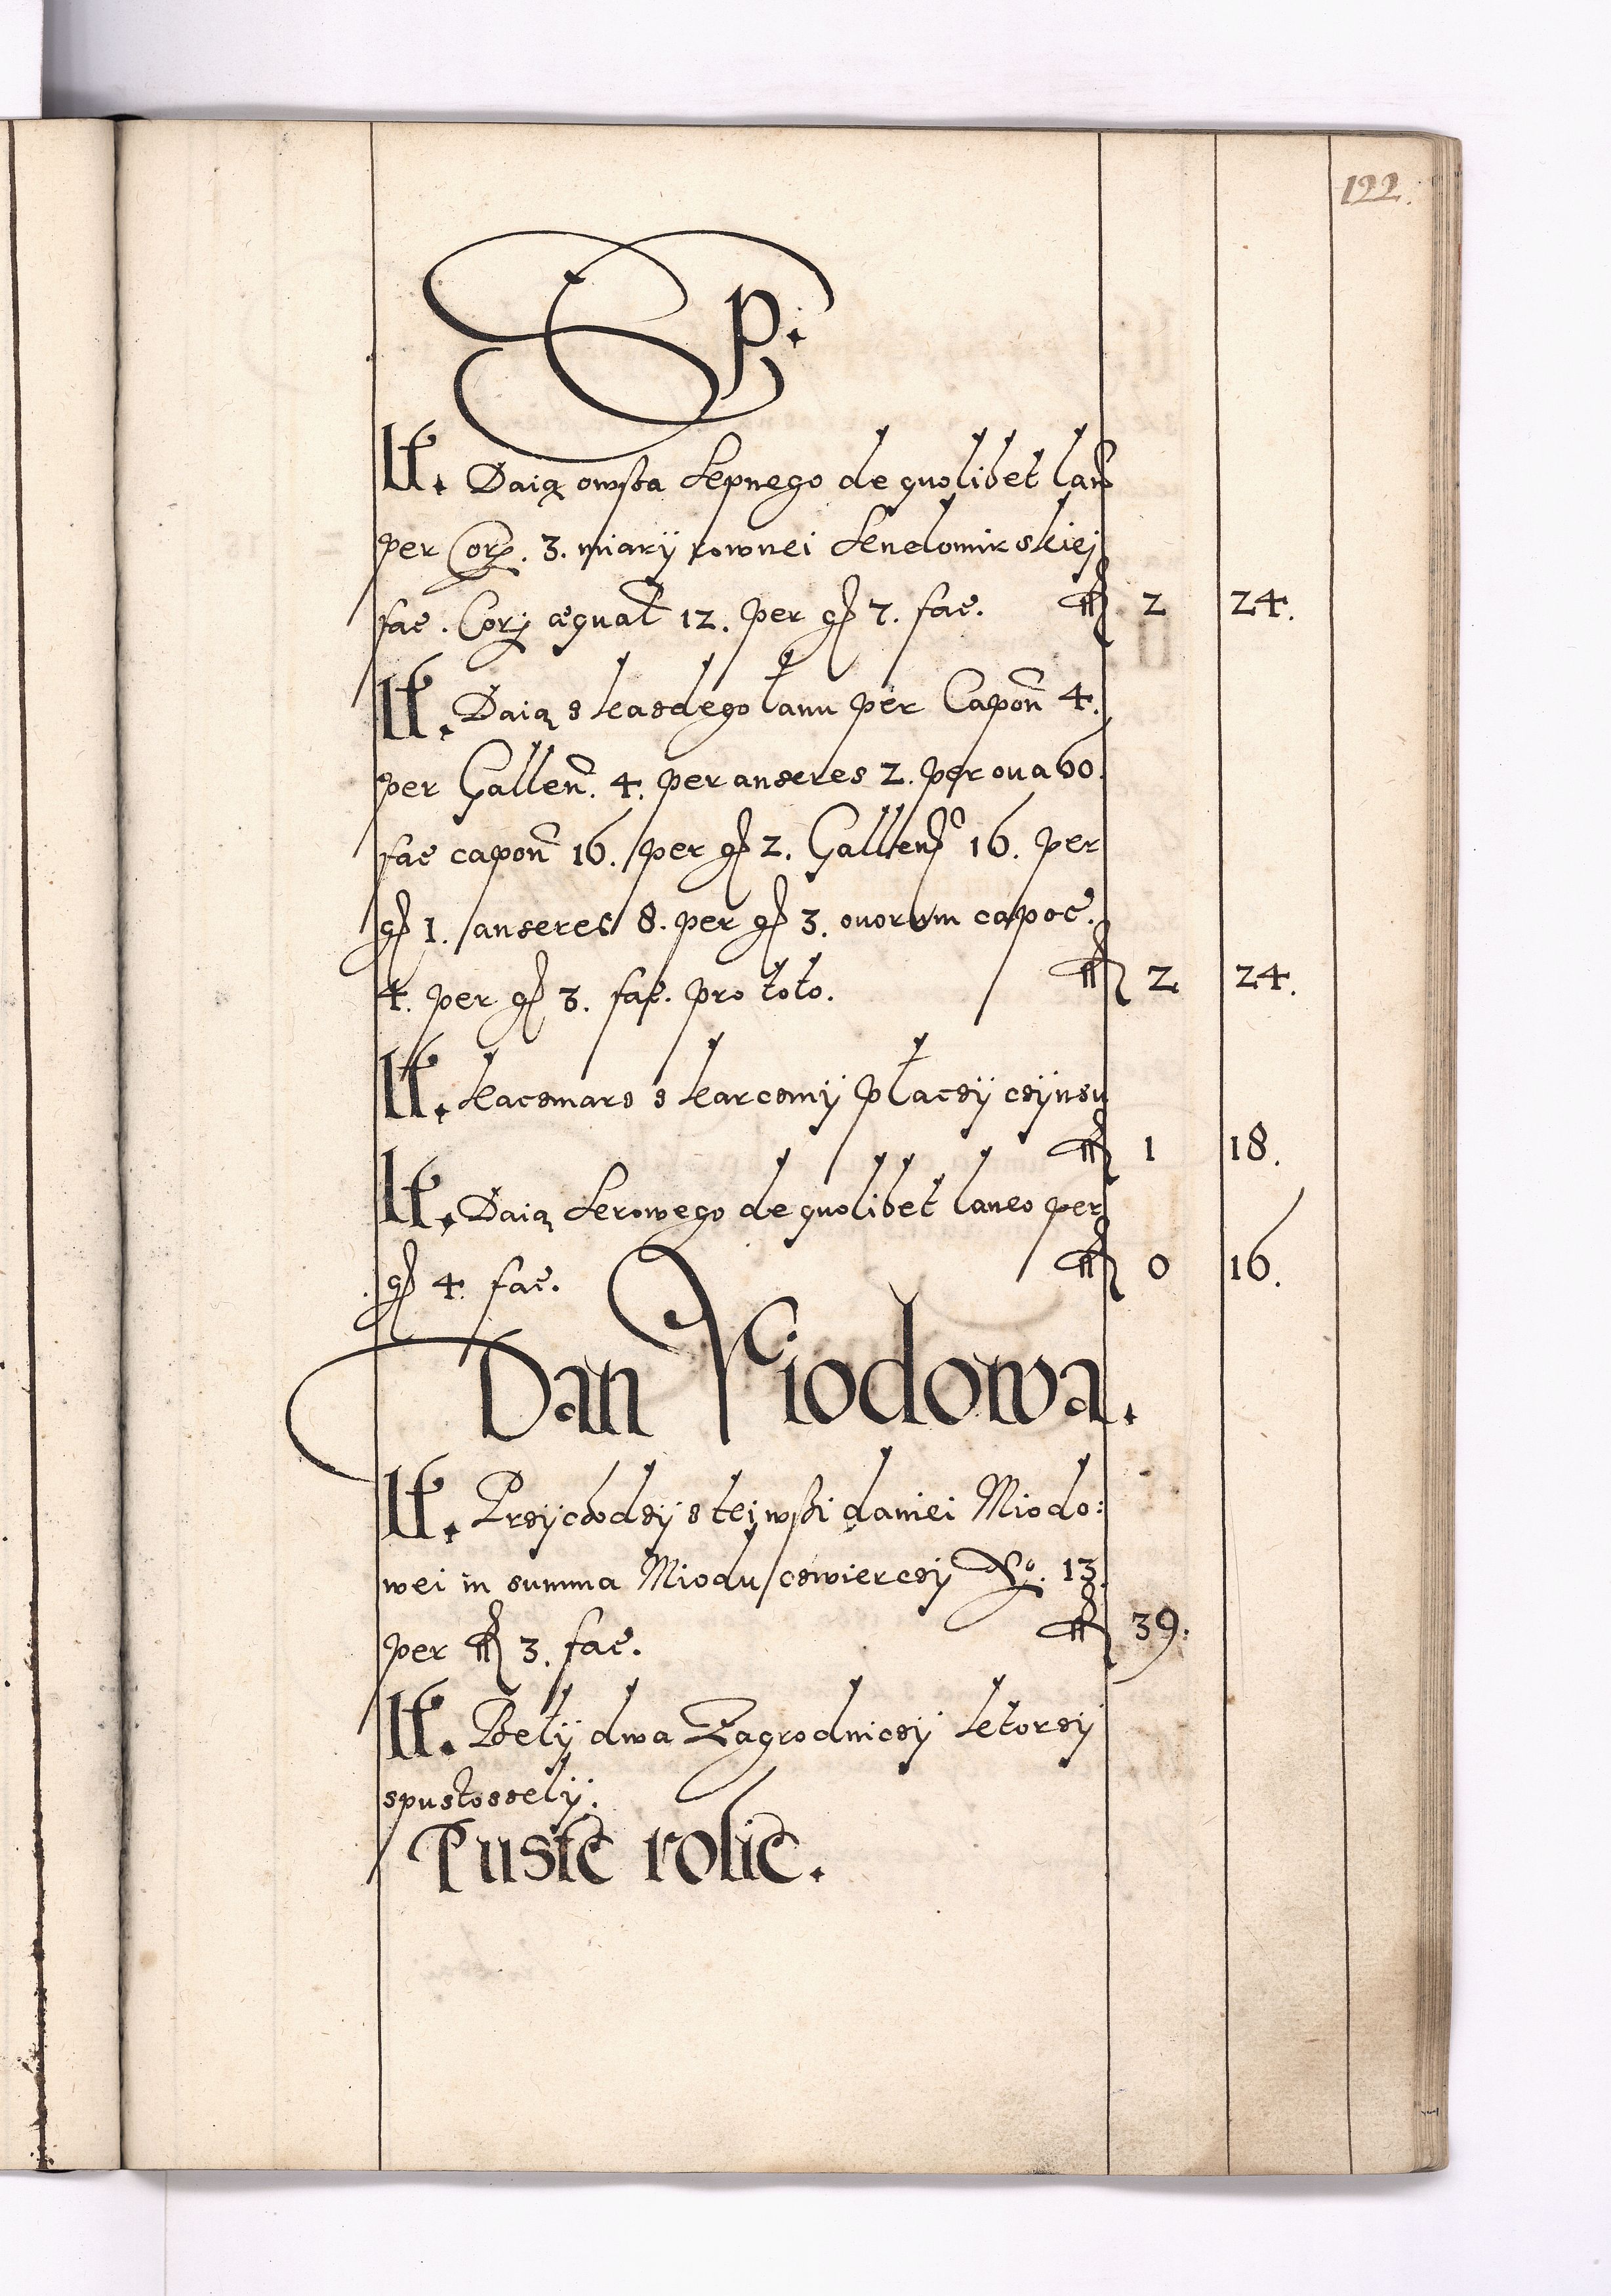 122.
It. Daią owsa sepnego de quolibet lan
per Cor. 3. miary rownei sendomirskiej
fac. Cor. æqual 12. per g 7. fac. 2 24.
It. Daią s kasdego lanu per Capon 4.
per Gallen. 4. per anseres 2. per oua 60.
fac capon 16. per g 2. Gallen 16. per
g 1. anseres 8. per g 3. ouorum capoc.
4. per g 3. fac. pro toto. 2 24.
It. kacsmars s karcsmÿ płacsÿ csÿnsu
1 18.
It. Daią serowego de quolibet laneo per
g 4 fac. 0 16.
Dan Miodowa.
It. Prsÿchodsÿ s teÿ wsi daniei Miodo:
wei in summa Miodu cswiercsÿ No. 13.
per 3. fac. 39.
It. Belÿ dwa Zagrodnicsÿ ktorsÿ
spustosselÿ.
Puste rolie.